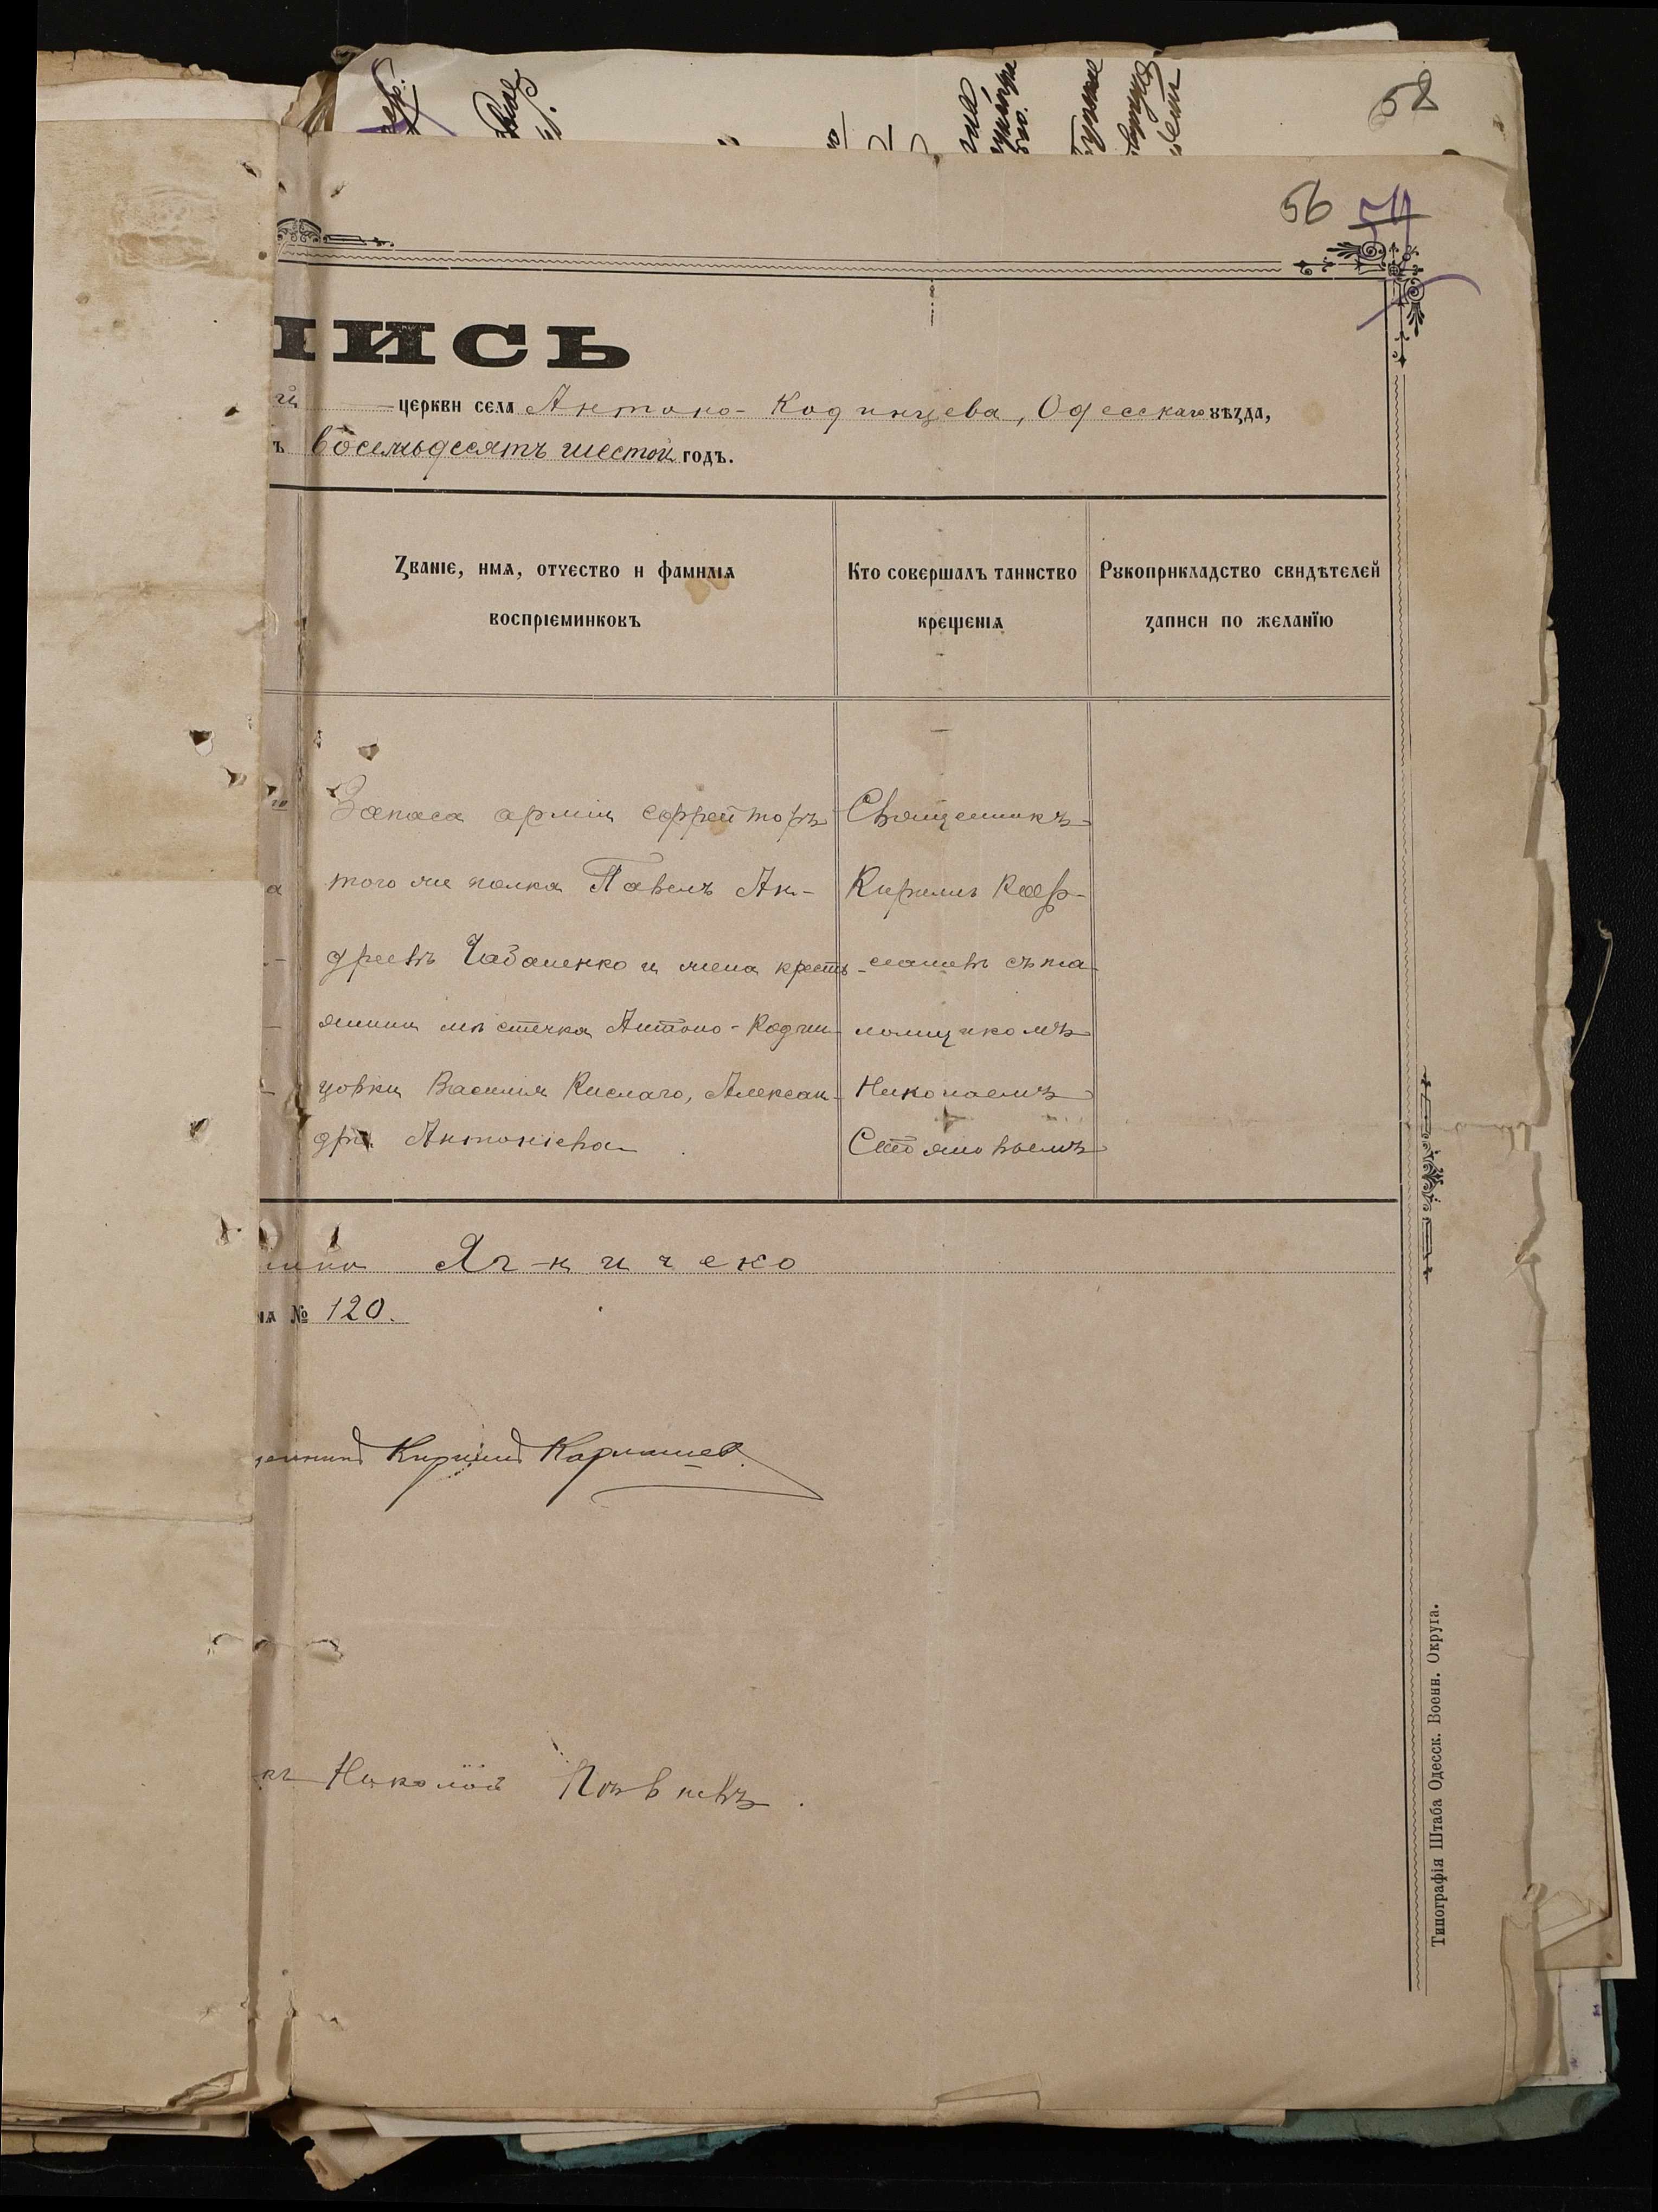 58
56 54
ПИСЬ
церкви села Антоно-Кодинцева, Одесскаго уѣзда,
ъ восемьдесятъ шестой годъ.
Званіе, имя, отчество и фамилія
воспріемниковъ
Кто совершалъ таинство
крещенія
Рукоприкладство свидѣтелей
записи по желанію
Запаса арміи ефрейторъ
того же полка Павелъ Ан-
дреевъ Чабаненко и жена кресть-
янина мѣстечка Антоно-Кодин-
цовки Василія Кислаго, Алексан-
дра Антоніева
Священникъ
Кириллъ Кар-
машевъ съ пса-
ломщикомъ
Николаемъ
Стояновымъ
№ 120.
Кириллъ Кармашев.
къ Николай
Типографія Штаба Одесск. Военн. Округа.